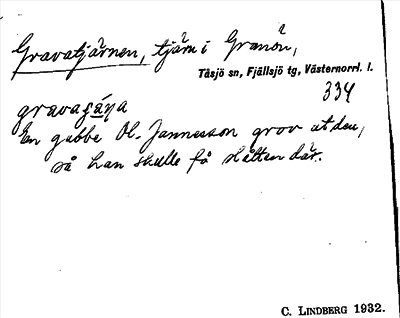 Gravatjärnen, tjärn i Granön,
Tåsjö sn, Fjällsjö tg, Västernorrl. l.
334
En gubbe Ol-Jannesson grov ut den,
så han skulle få slåtten där.
C. LINDBERG 1932.